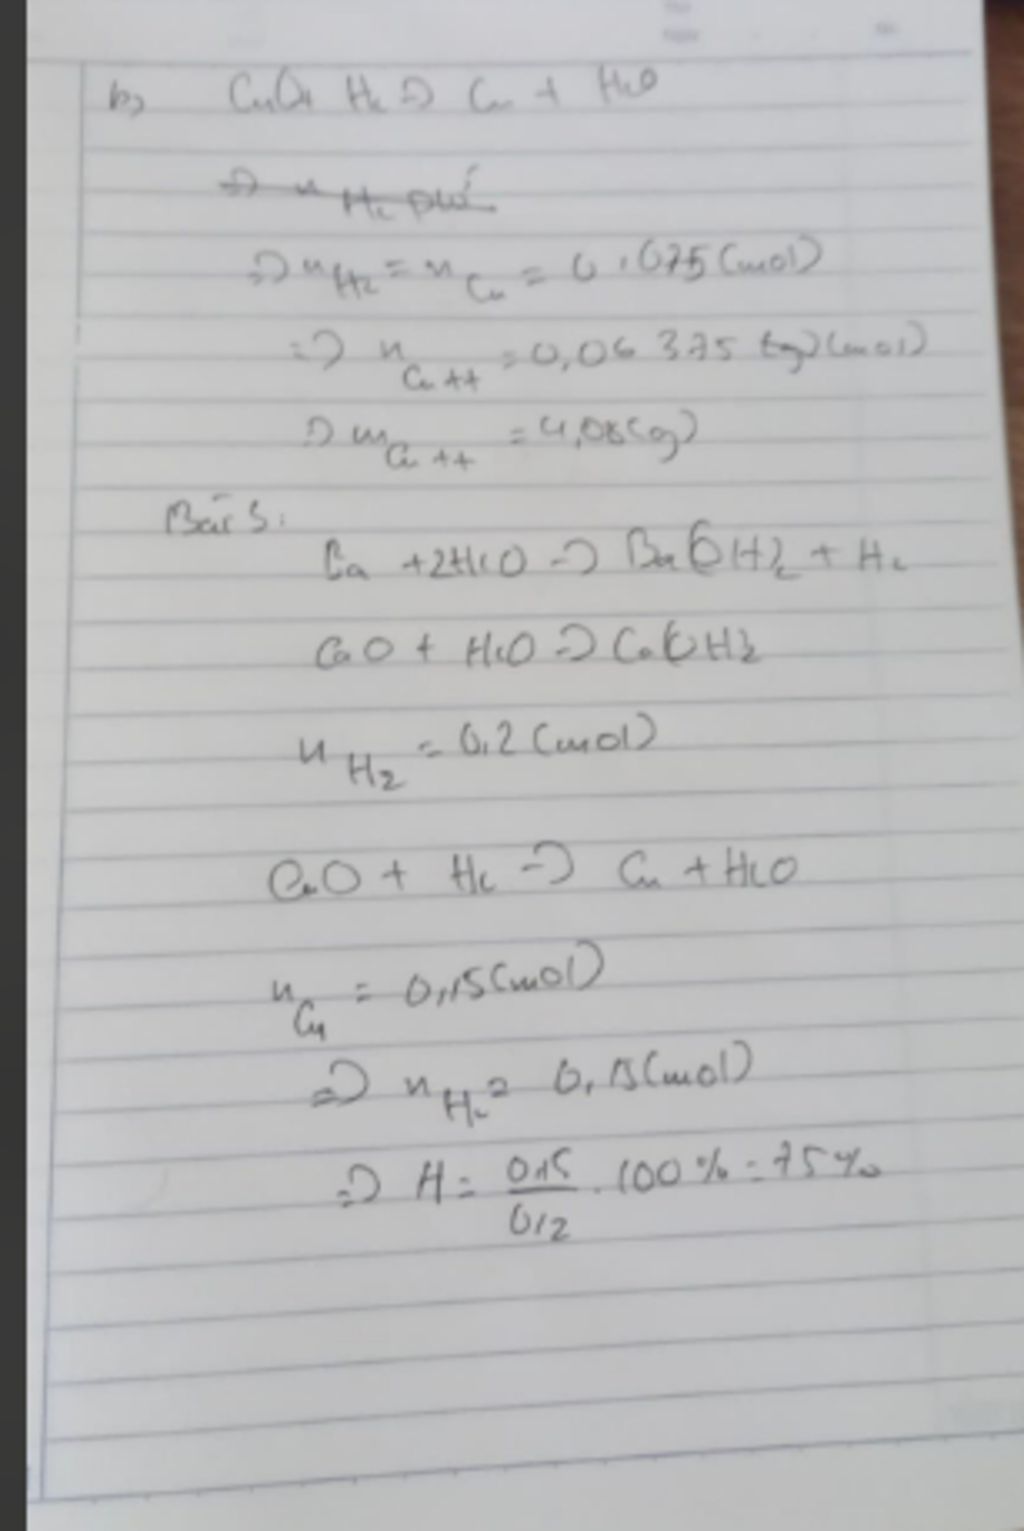 b, CuO + H2 => Cu + H2O
=> n H2 pứ
=> n H2 = n Cu = 0,075 (mol)
=> n Cu tt = 0,06375 (mol)
=> m Cu tt = 4,08 (g)
Bài 5:
Ba + 2H2O => Ba(OH)2 + H2
CaO + H2O => Ca(OH)2
n H2 = 0,2 (mol)
CuO + H2 => Cu + H2O
n Cu = 0,15 (mol)
=> n H2 = 0,15 (mol)
=> H = 0,15 / 0,2 . 100% = 75%